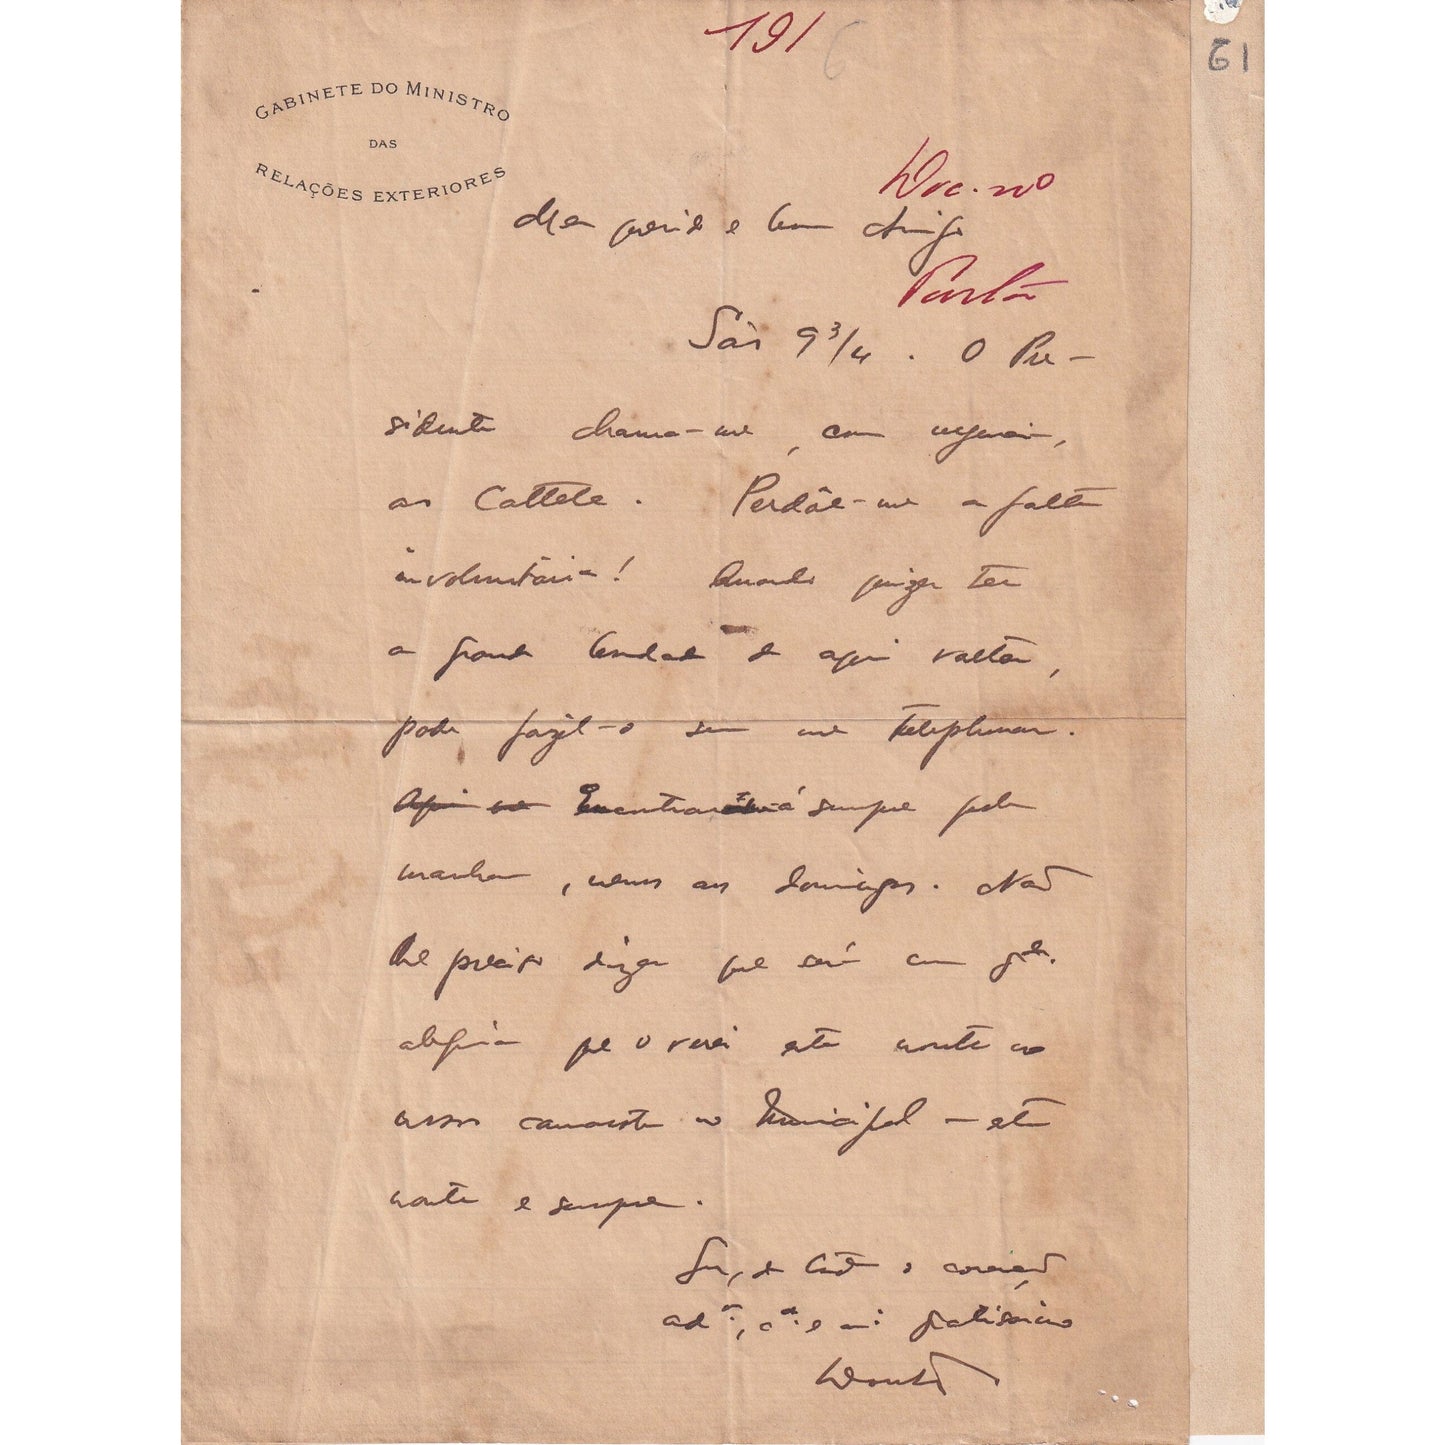 191
6
61
GABINETE DO MINISTRO
DAS
RELAÇÕES EXTERIORES
Doc. nº
Meu querido e bom Amigo
Pasta
São 9 3/4. O Pre-
sidente chama-me, com urgencia,
ao Cattete. Perdôe-me a falta
involuntária! Quando quizer ter
a grande bondade de aqui voltar,
pode fazêl-o sem me telephonar.
Aqui me Encontrará sempre pela
manhan, menos aos domingos. Não
lhe preciso dizer que será com gde.
alegria que o verei esta noute no
nosso camarote no Municipal – esta
noute e sempre.
Seu, de todo o coração
ador., e gratissimo